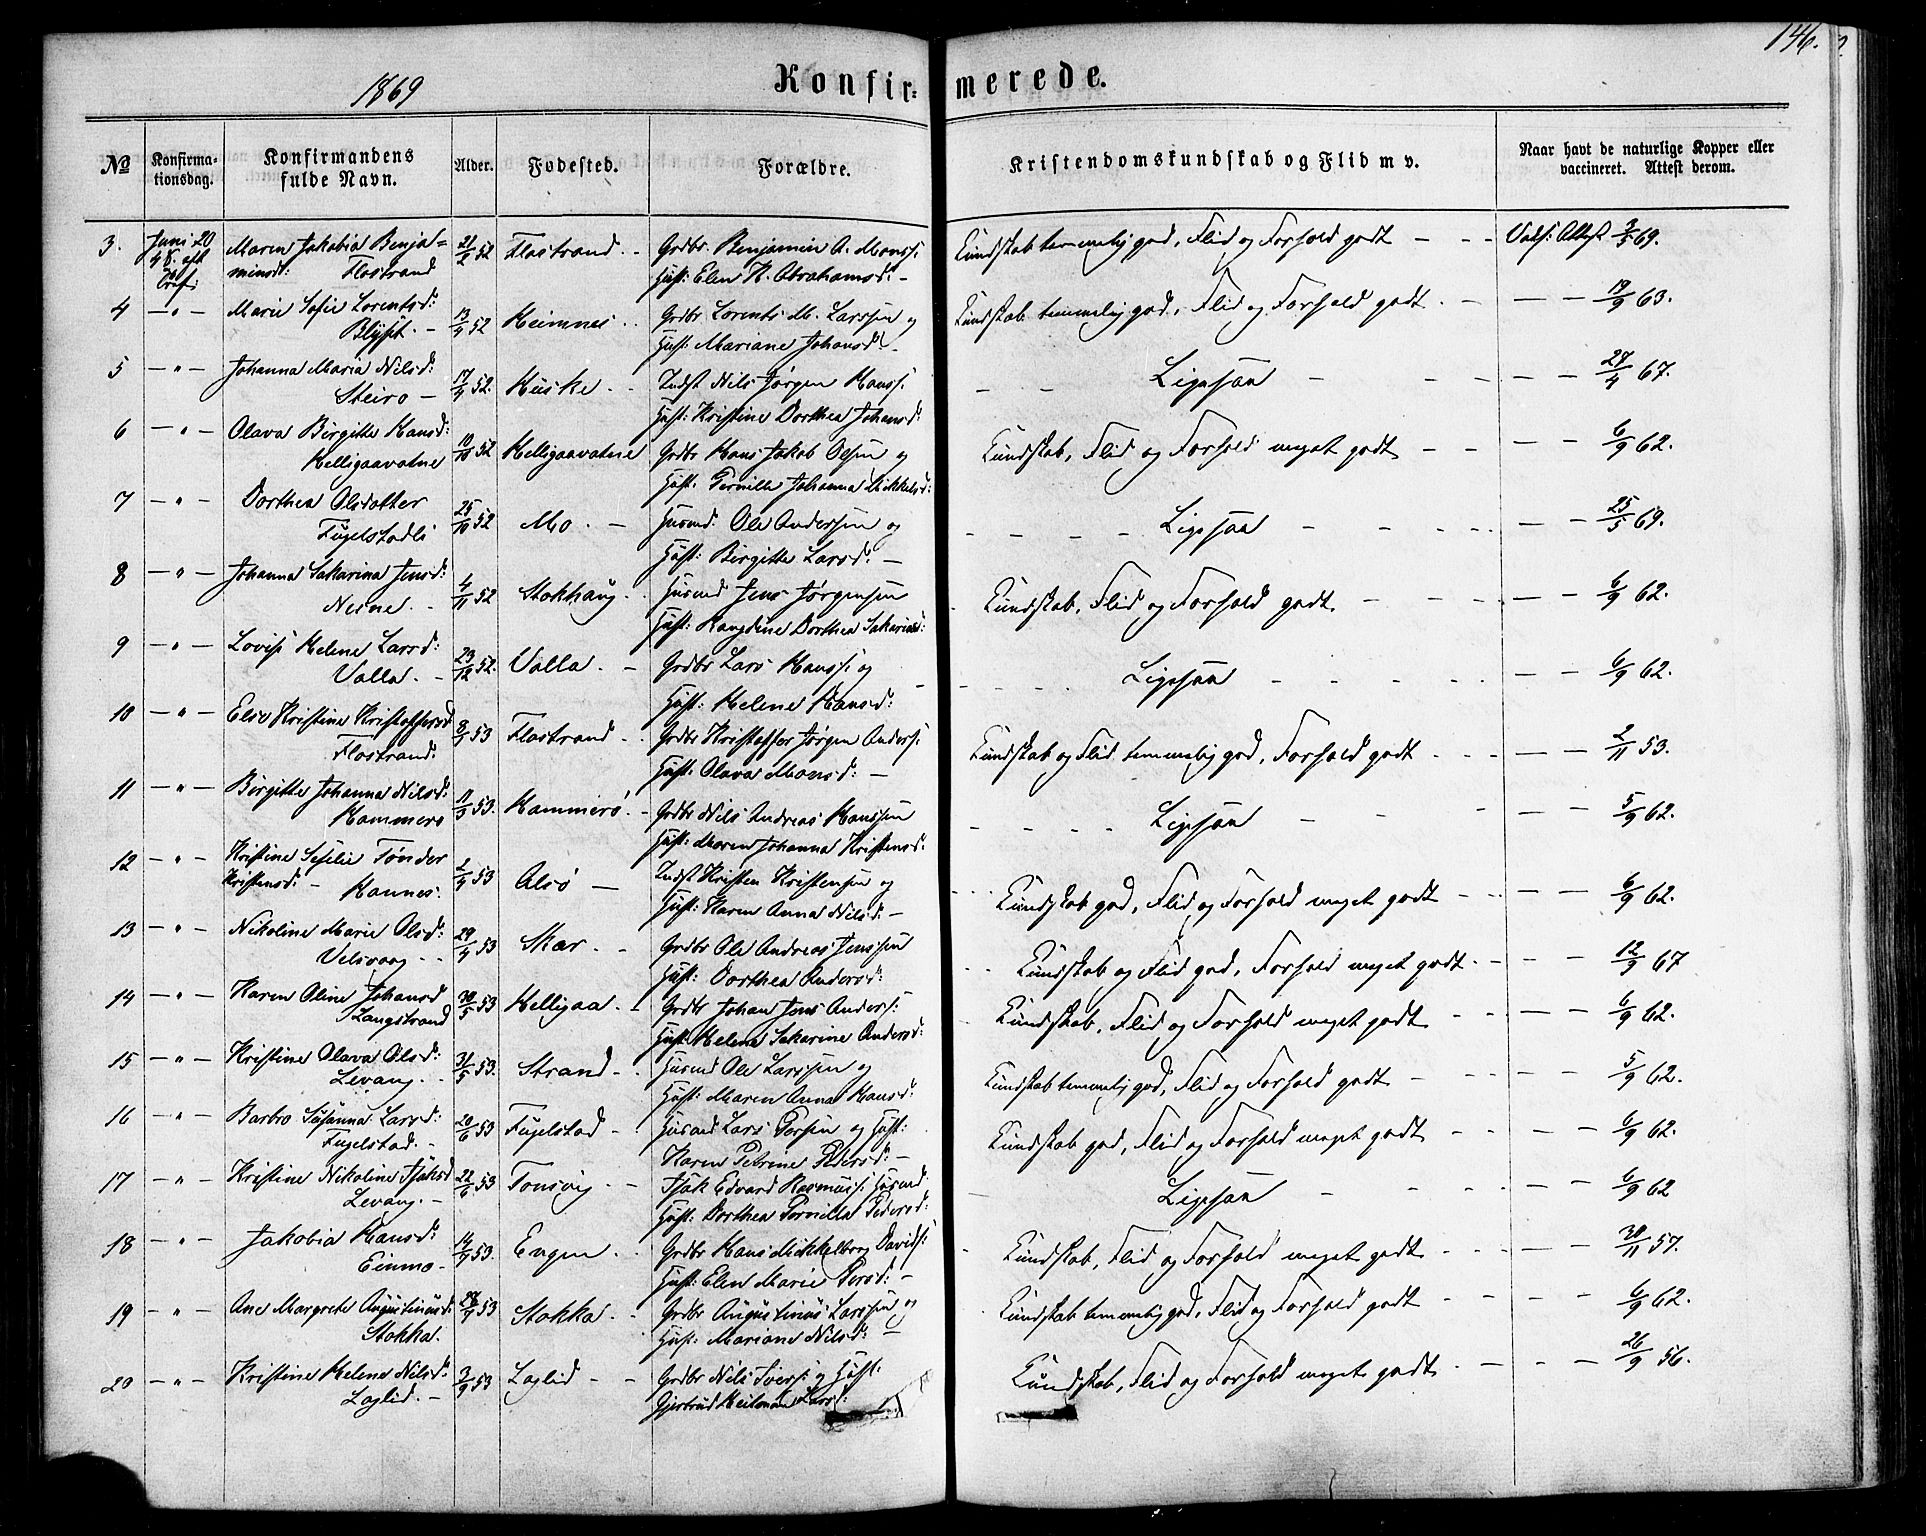 146.
1869
Konfir= merede.
No Konfirma-tionsdag. Konfirmandens fulde Navn. Alder. Fødested. Forældre. Kristendomskundskab og Flid m v. Naar havt de naturlige Kopper eller vaccineret. Attest derom.
3. Juni 20 Maren Jakobia Benja= 21/2 52 Flostrand. - Grdbr. Benjamin A. Monss: Kundskab temmelig god, Flid og Forhold godt - - - Vads: Attest 3/5 69.
4 S. eft. minsd: Flostrand Hust: Elen K. Abrahamsd: -
Tref:
4 - " - Marie Sofie Lorentsd: 13/4 52 Heimnes - Grdbr. Lorents M. Larssen og Kundskab temmelig god, Flid og Forhold godt. - - - 19/9 63.
Hust: Mariane Johansd: -
5 - " - Johanna Maria Nilsd: 17/4 52. Huske - Indst Nils Jørgen Hanss: - - Ligesaa - - - - - 27/4 67.
Steiro - Hust: Kristine Dorthea Johansd:
6 - " - Olava Birgitte Hansd: 10/10 52 Helligaavatne Grdbr Hans Jakob Olsen og Kundskab, Flid og Forhold meget godt - - - - 6/9 62.
Helligaavatne Hust: Pernille Johanna Mikkelsd:
7 - " - Dorthea Olsdatter 25/10 52 Mo. - Husmd: Ole Andersen og - - - - Ligesaa - - - - - 25/5 69.
Fugelstadli Hust: Birgitte Larsd: -
8 - " - Johanna Sakarina Jensd: 4/11 52 Stokhaug - Husmd Jens Jørgensen Kundskab, Flid og Forhold godt - - - - - 6/9 62.
Nesne. - Hust: Dorthea Sakariasd:
9 - " - Lovise Helene Larsd: 23/12 52. Valla. - Grdbr Lars Hanss: og - - - - Ligesaa - - - - - 6/9 62.
Valla. - Hust: Helene Hansd:
10 - " - Else Kristine Kristoffersd 8/1 53 Flostrand - Grdbr Kristoffer Jørgen Anderss: Kundskab og Flid temmelig god, Forhold godt - - - - 2/11 53.
Flostrand. Hust: Olava Monsd: -
11 - " - Birgitte Johanna Nilsd: 11/3 53. Hammerø. - Grdbr Nils Andreas Hanssen - - - - Ligesaa - - - - - 5/9 62.
Hammerø Hust: Maren Johanna Kristensd:
12 - " - Kristine Sefilie Tønder 2/4 53 Alsø - Indst Kristen Kristensen og Kundskab god, Flid og Forhold meget godt - - - - 6/9 62.
Kristensd: - Hannes. Hust: Karen Anna Nilsd: -
13 - " - Nikoline Marie Olsd: 29/4 53 Skar. - Grdbr Ole Andreas Jenssen Kundskab og Flid god, Forhold meget godt. - - - 12/9 67
Velsvaag - - Hust: Dorthea Andersd:
14 - " - Karen Oline Johansd 30/5 53 Helligaa. - Grdbr Johan Jens Anderss: Kundskab, Flid og Forhold meget godt - - - - 6/9 62.
Langstrand Hust Helena Sakarine Andersd:
15 - " - Kristine Olava Olsd: 31/5 53. Strand - Husmd Ole Larssen og Kundskab temmelig god, Flid og Forhold godt - - - - 5/9 62.
Levang. - Hust: Maren Anna Hansd:
16 - " - Barbro Susanna Larsd: 20/6 53 Fugelstad - Husmd Lars Persen og Hust: Kundskab god, Flid og Forhold meget godt - - - - 6/9 62.
Fugelstad. - Karen Petrine Pedersd: -
17 - " - Kristine Nikoline Isaksd 22/6 53 Tonsvig - - Isak Edvard Rasmuss: Husmd - Ligesaa - - - - - 6/9 62
Levang. - Hust: Dorthea Pernilla Pedersd:
18 - " - Jakobia Hansd: 14/7 53. Engen - Grdbr Hans Mikkelborg Davids: Kundskab, Flid og Forhold meget godt - - - - 30/11 57.
Einmo - Hust: Elen Marie Persd: -
19 - " - Ane Margrete Augustinusd: 28/7 53 Stokka - Grdbr Augustinus Larssen og Kundskab temmelig god, Flid og Forhold godt - - - - 6/9 62.
Stokka. Hust: Mariane Nilsd: -
20 - " - Kristine Helene Nilsd: 2/9 53 Laglid - - Grdbr Nils Ivers: og Hust: Kundskab, Flid og Forhold meget godt - - - - 26/9 56.
Laglid. - Gjertrud Larsd: